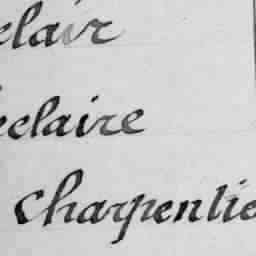 clair
eclaire
Charpentie